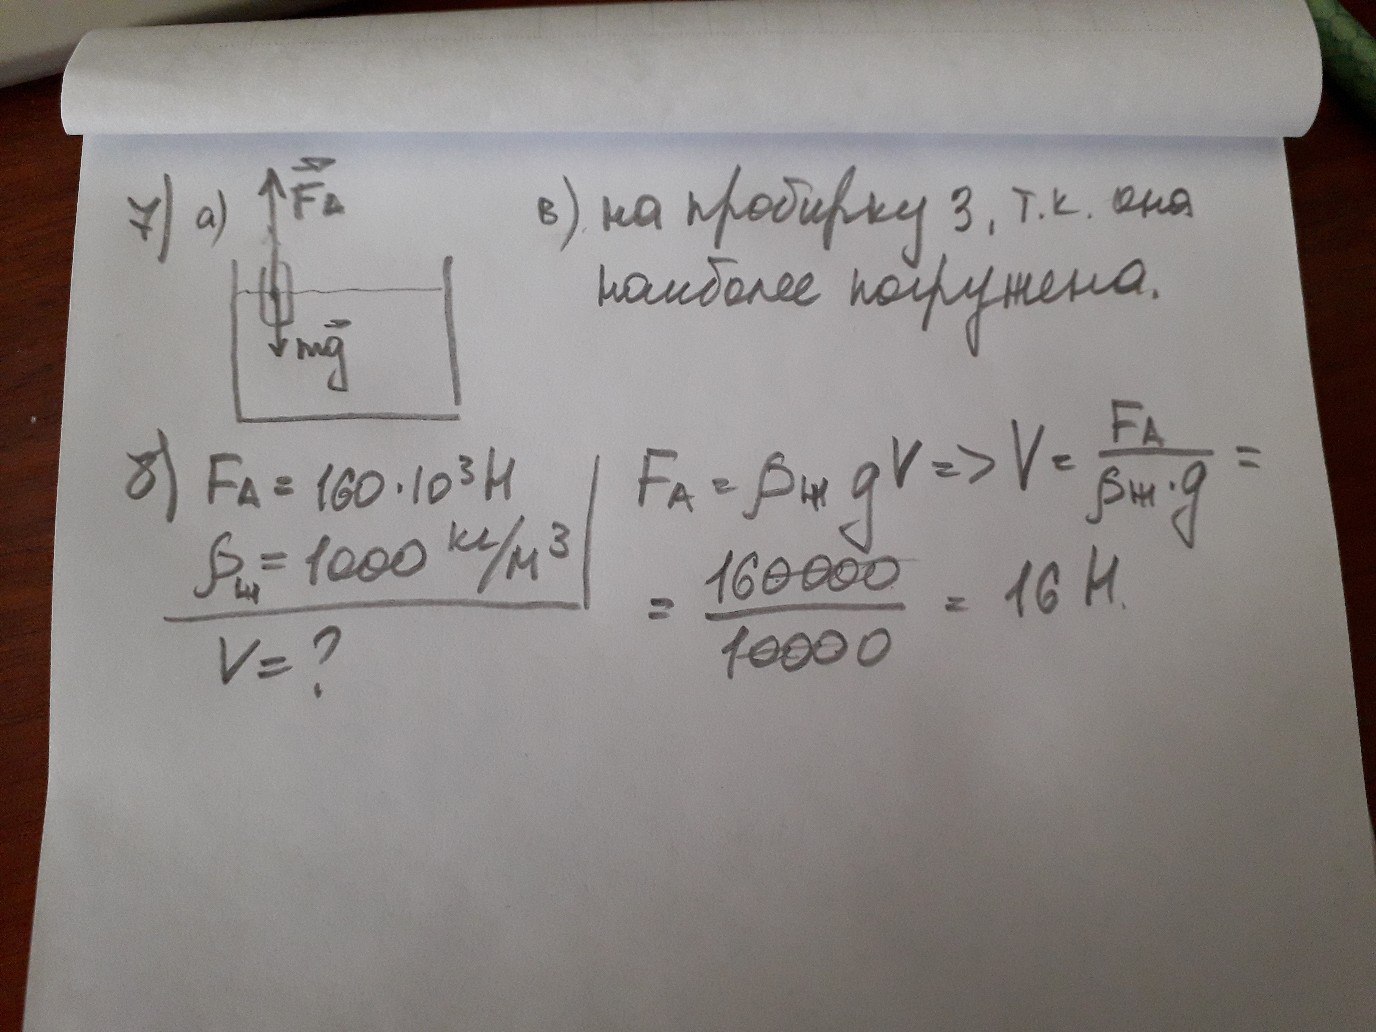 7) а) F⃗А
mg⃗
в) на пробирку 3, т.к. она
наиболее погружена.
8) FА = 160·10³ Н
ρж = 1000 кг/м³
V = ?
FА = ρж gV => V = FА / ρж·g =
= 160000 / 10000 = 16 Н.